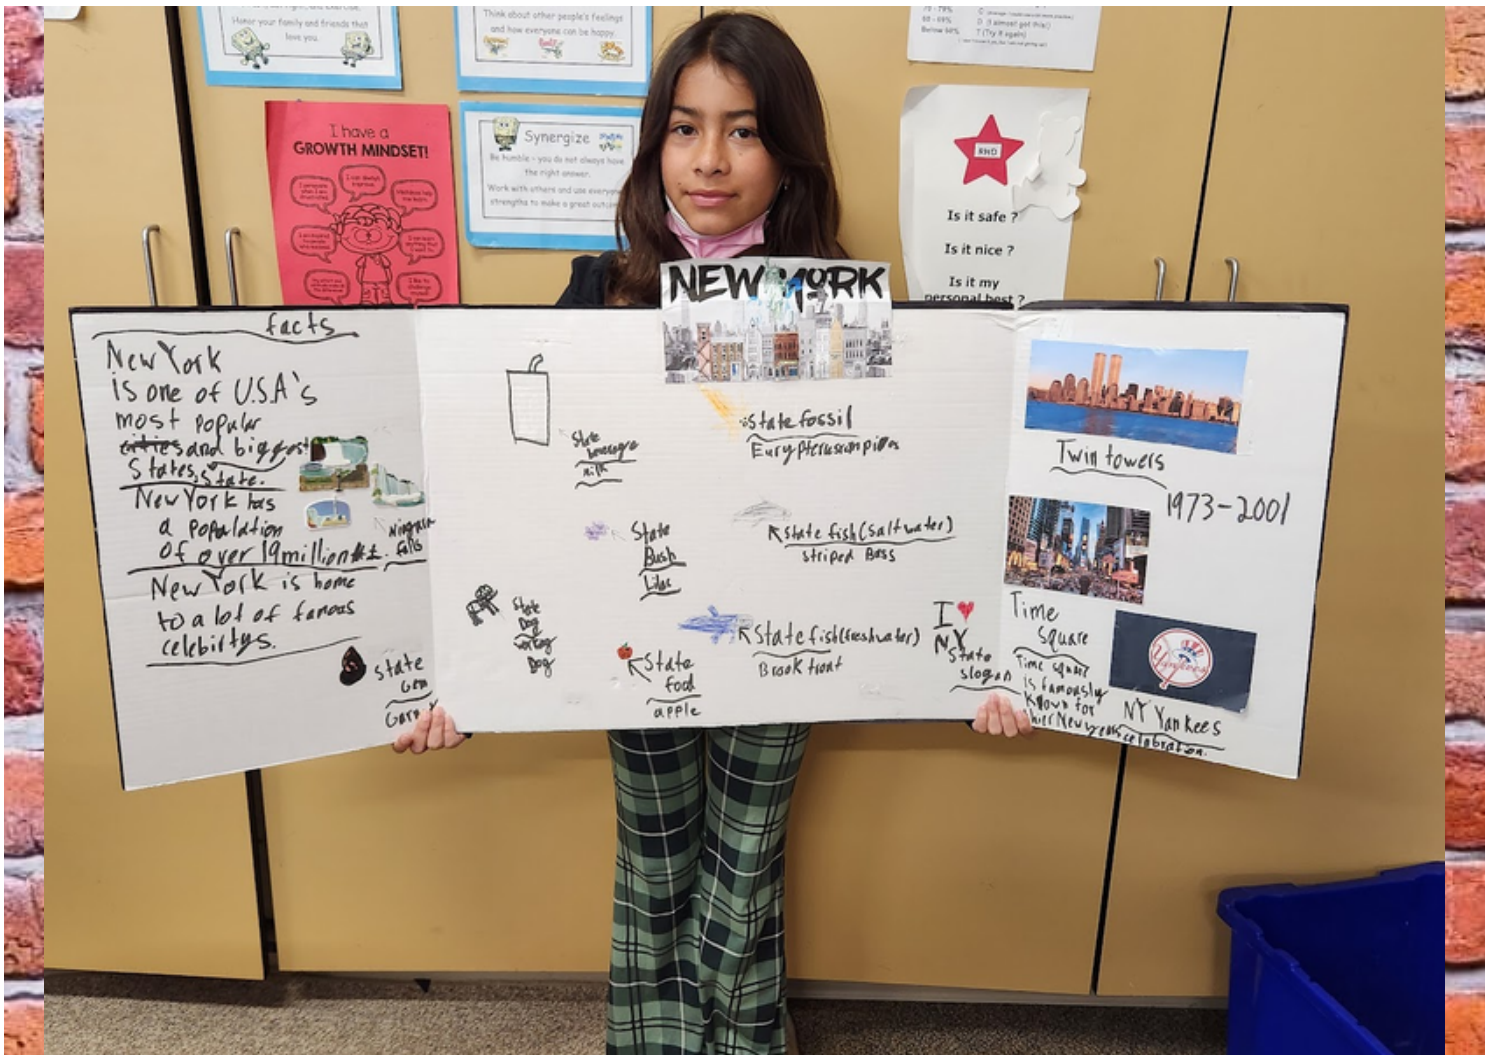 Honor your family and friends that
love you.
Think about other people's feelings
and how everyone can be happy.
60 - 69%
Below 60%
D (I almost got this!)
? (Try it again)
I have a
GROWTH MINDSET!
Synergize
Be humble - you do not always have
the right answer.
Work with others and use everyone
strengths to make a great
Is it safe ?
Is it nice ?
Is it my
personal best ?
NEW YORK
facts
New York
is one of U.S.A's
most popular
cities and biggest
States, State.
New York has
a population
of over 19 million
New York is home
to a lot of famous
celebirtys.
falls
State
Gem
State
beverage
milk
State
Bush
Lilac
State
Dog
working
Dog
State
food
apple
State fossil
State fish (Saltwater)
striped Bass
State fish (freshwater)
Brook trout
I ♥
NY
State
slogan
Twin towers
1973-2001
Time
Square
Time square
is famously
known for
thier New years celabration.
Yankees
NY Yankees